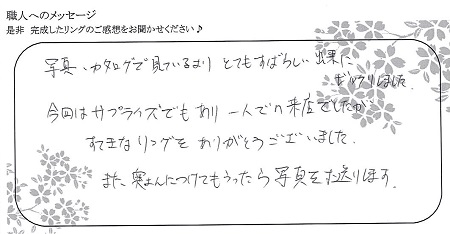 職人へのメッセージ
是非 完成したリングのご感想をお聞かせください♪
写真、カタログで見ているより とてもすばらしい 出来に
びっくりしました。
今回はサプライズでもあり 一人での来店でしたが
すてきなリングを ありがとうございました。
また、奥さんにつけてもらったら 写真を お送りします。